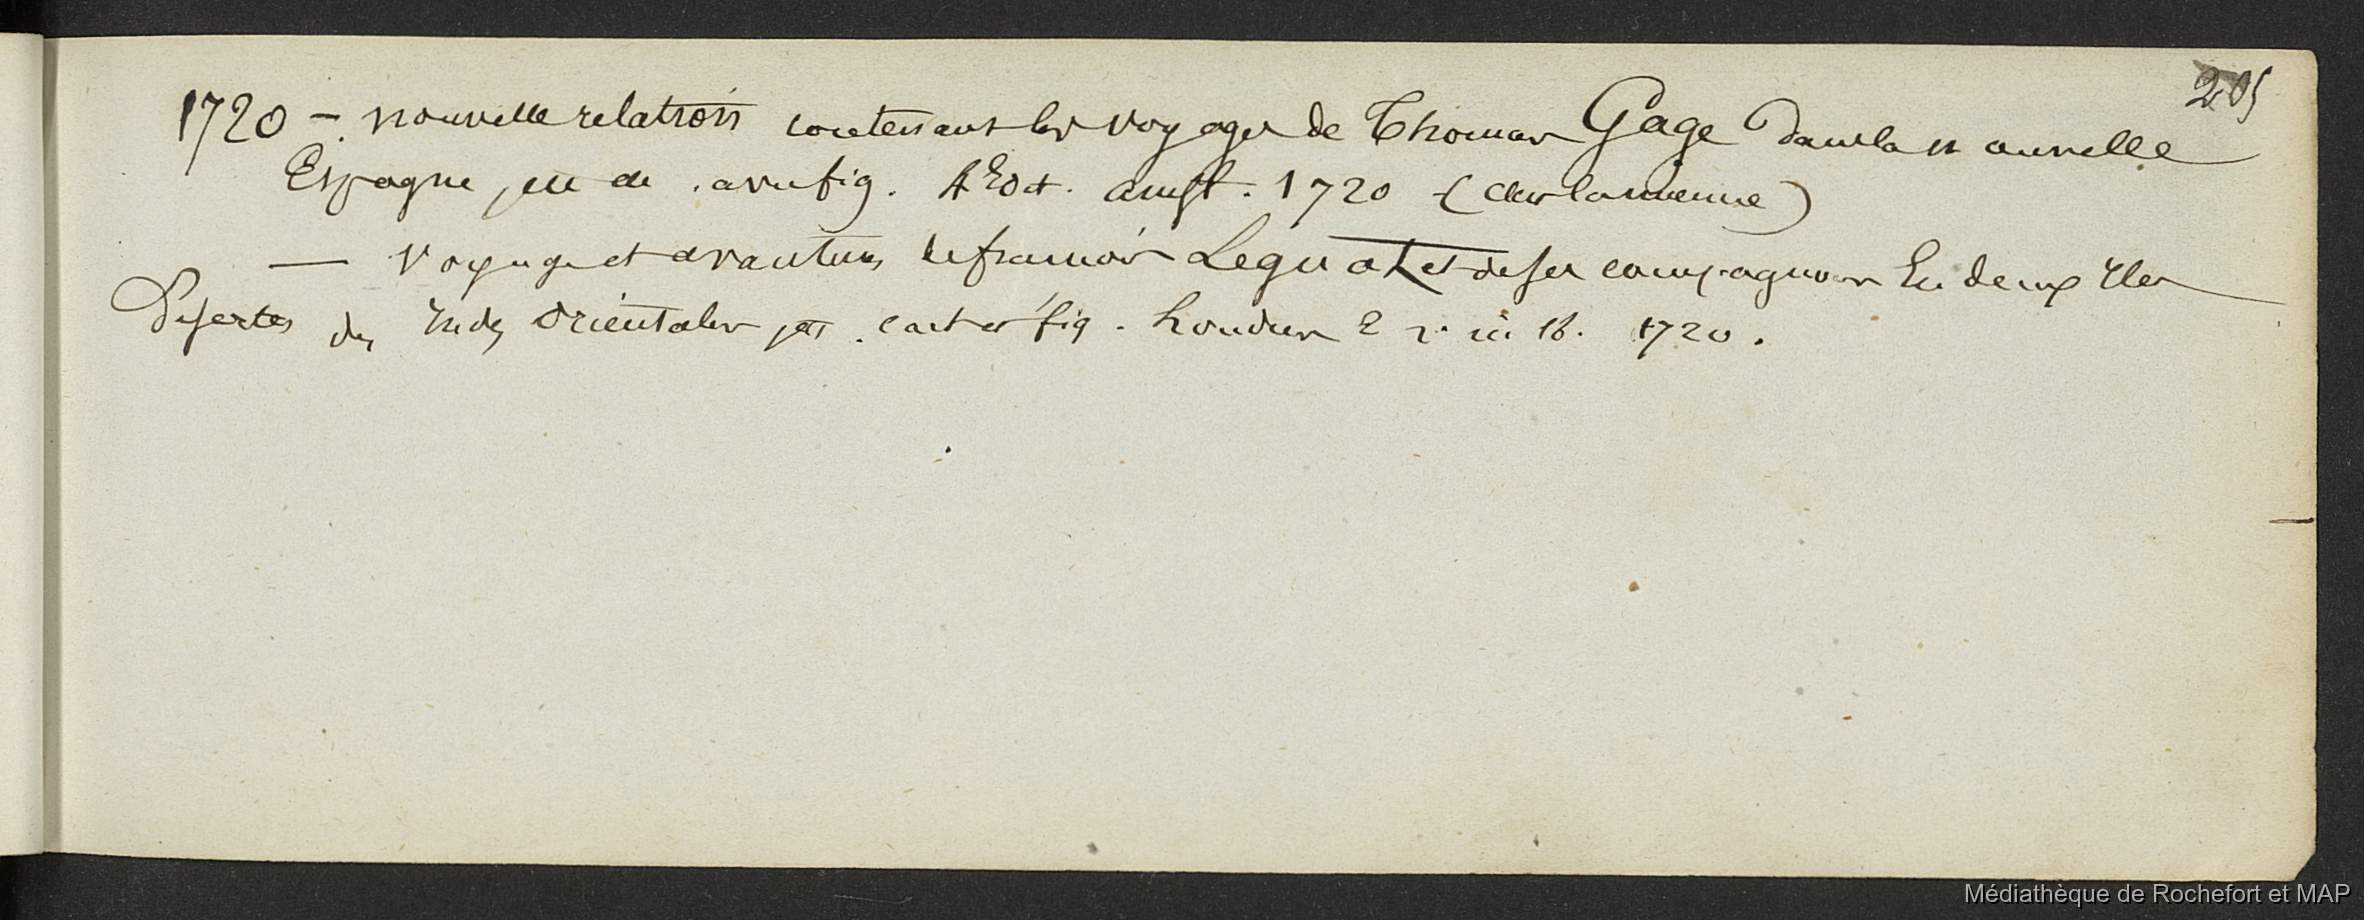 205
1720 – nouvelle relation contenant les voyages de Thomas Gage dans la nouvelle
Espagne avec fig. 4e Edit. Amst. 1720 (
— Voyage et avantures de francois Leguat et de ses compagnons En deux Iles
Desertes des Indes Orientales cart et fig. Londres 2 v. in 16. 1720.
Médiathèque de Rochefort et MAP